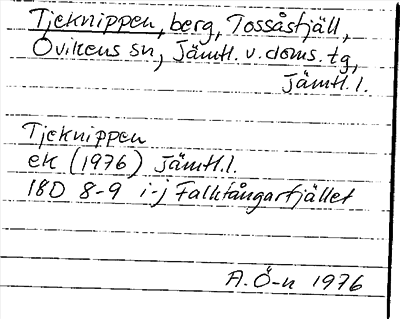 Tjeknippen, berg, Tossåsfjäll,
Ovikens sn, Jämtl. v. doms. tg,
Jämtl. l.
Tjeknippen
ek (1976) Jämtl. l.
18D 8-9 i-j Falktångarfjället
A. Ö-n 1976